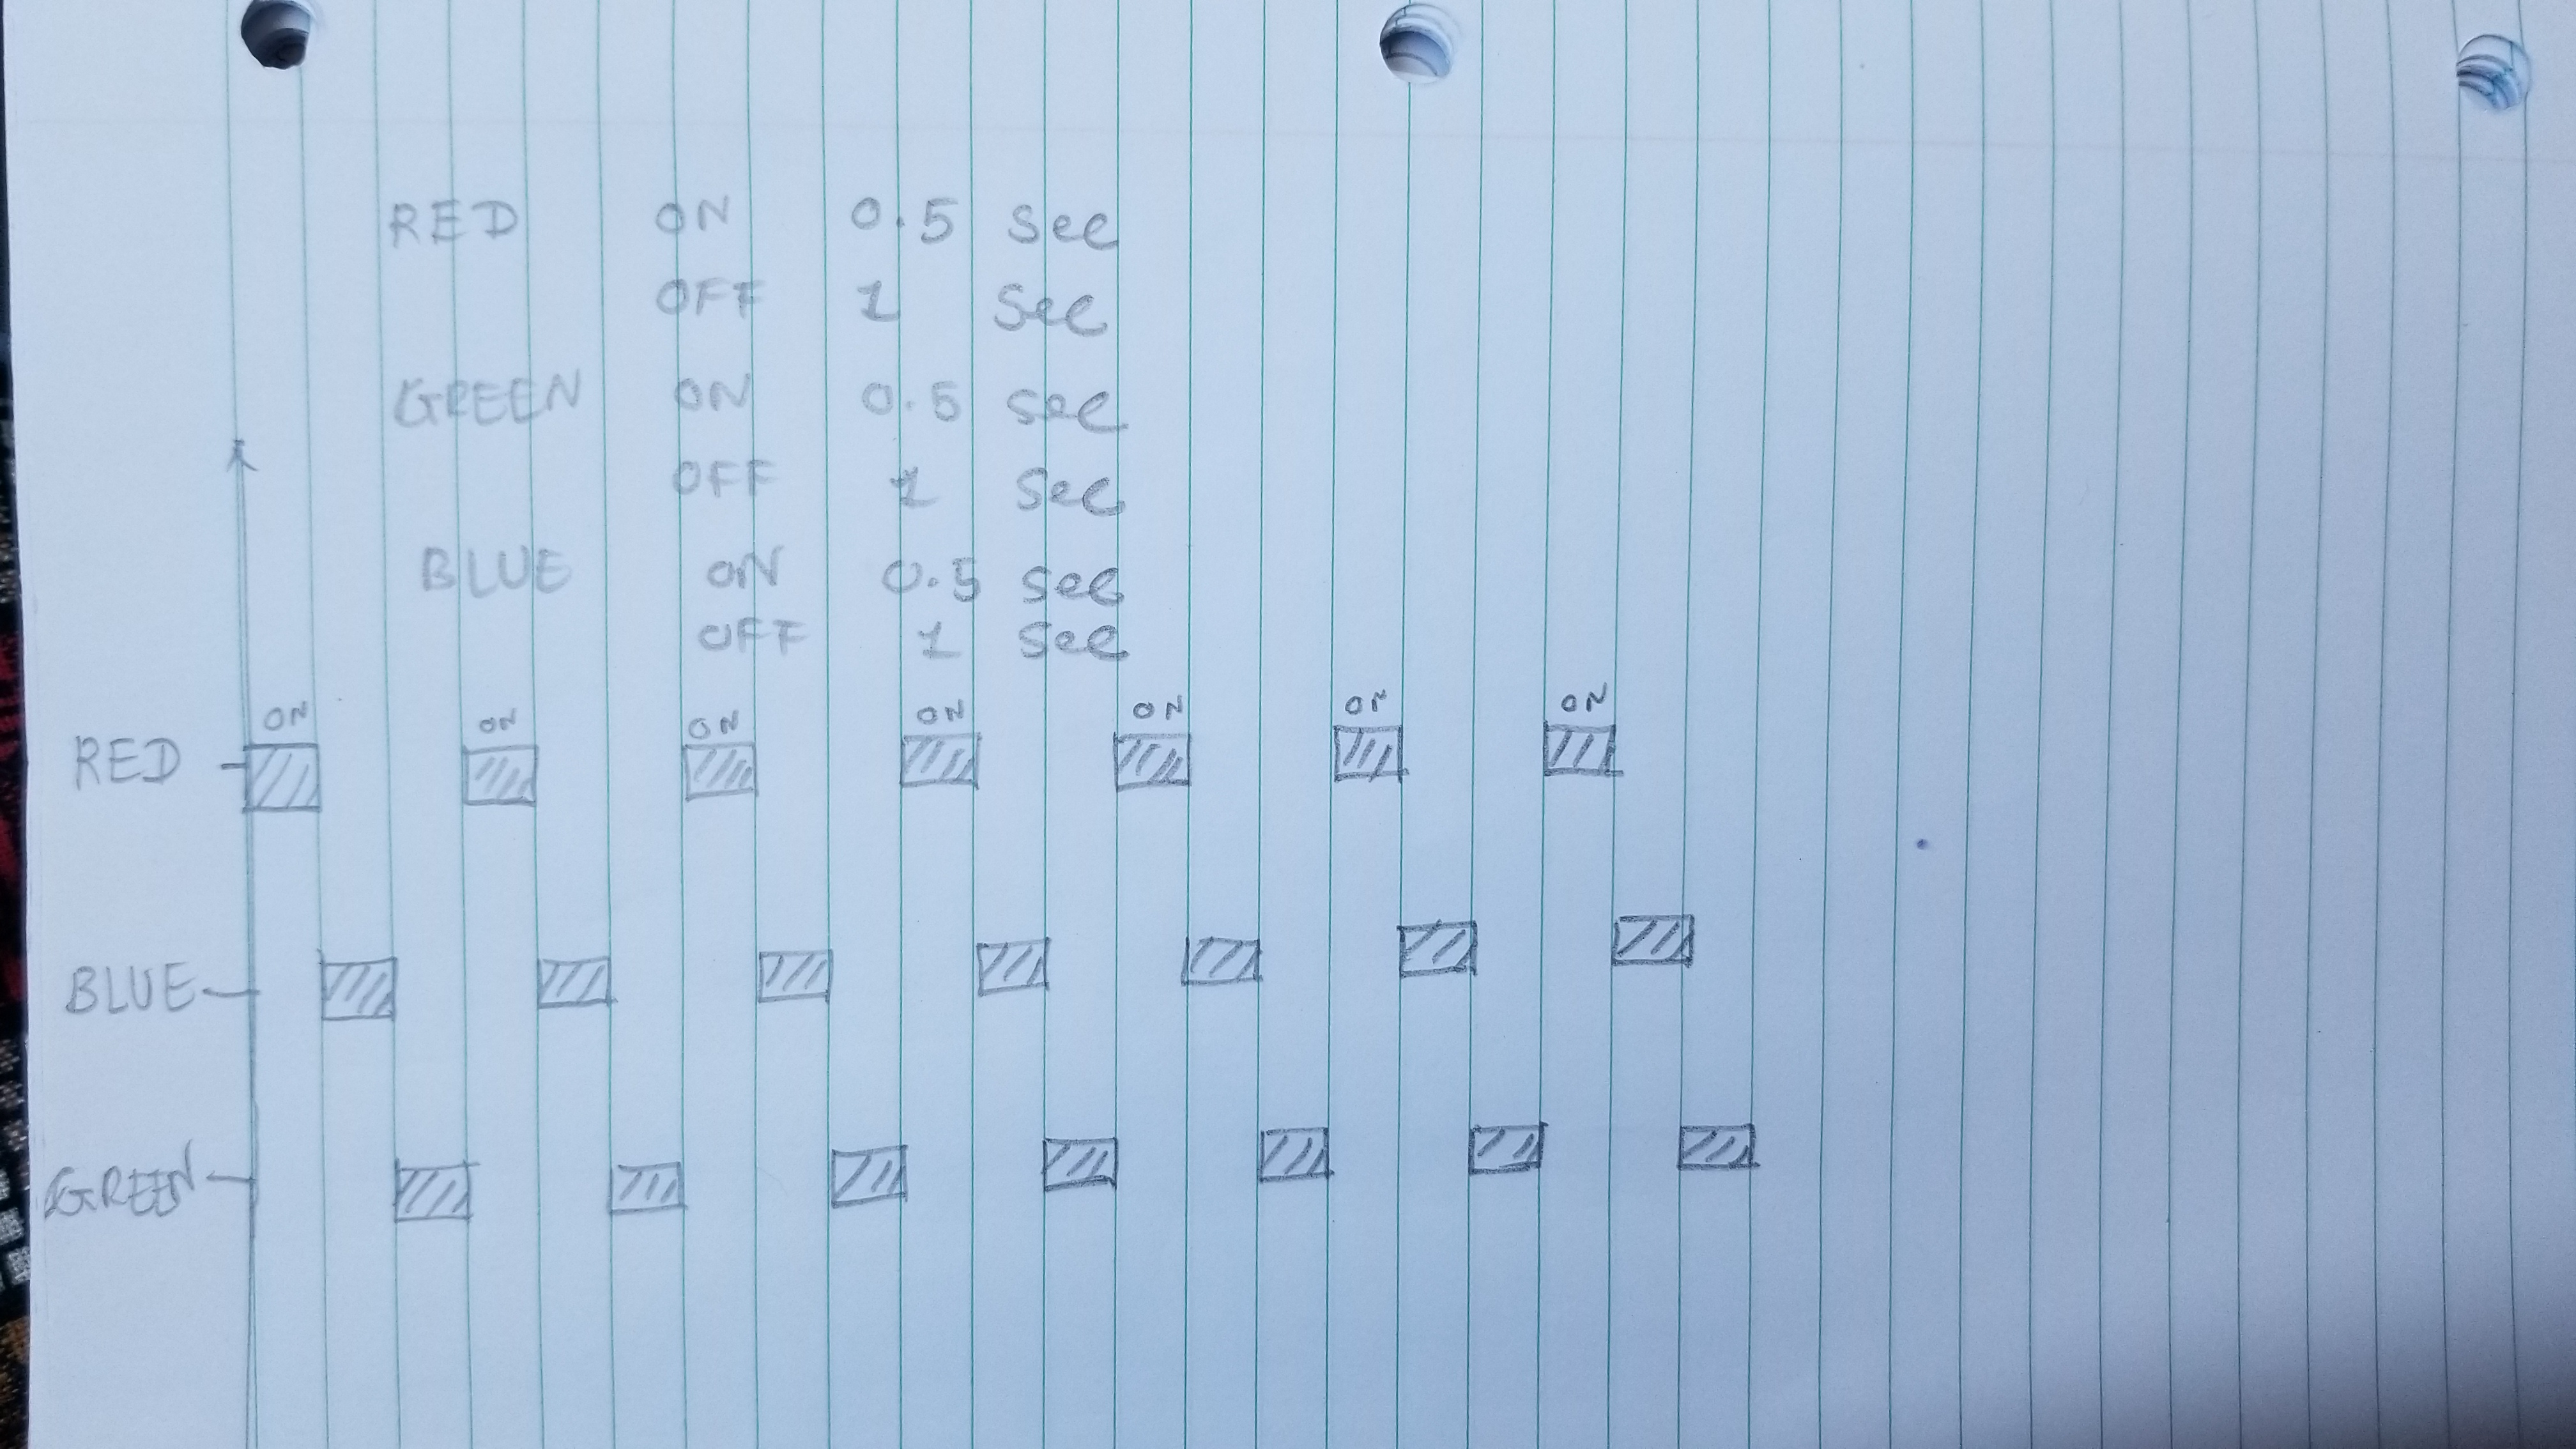 RED ON 0.5 sec
OFF 1 sec
GREEN ON 0.5 sec
OFF 1 sec
BLUE ON 0.5 sec
OFF 1 sec
RED ON ON ON ON ON ON ON
BLUE
GREEN